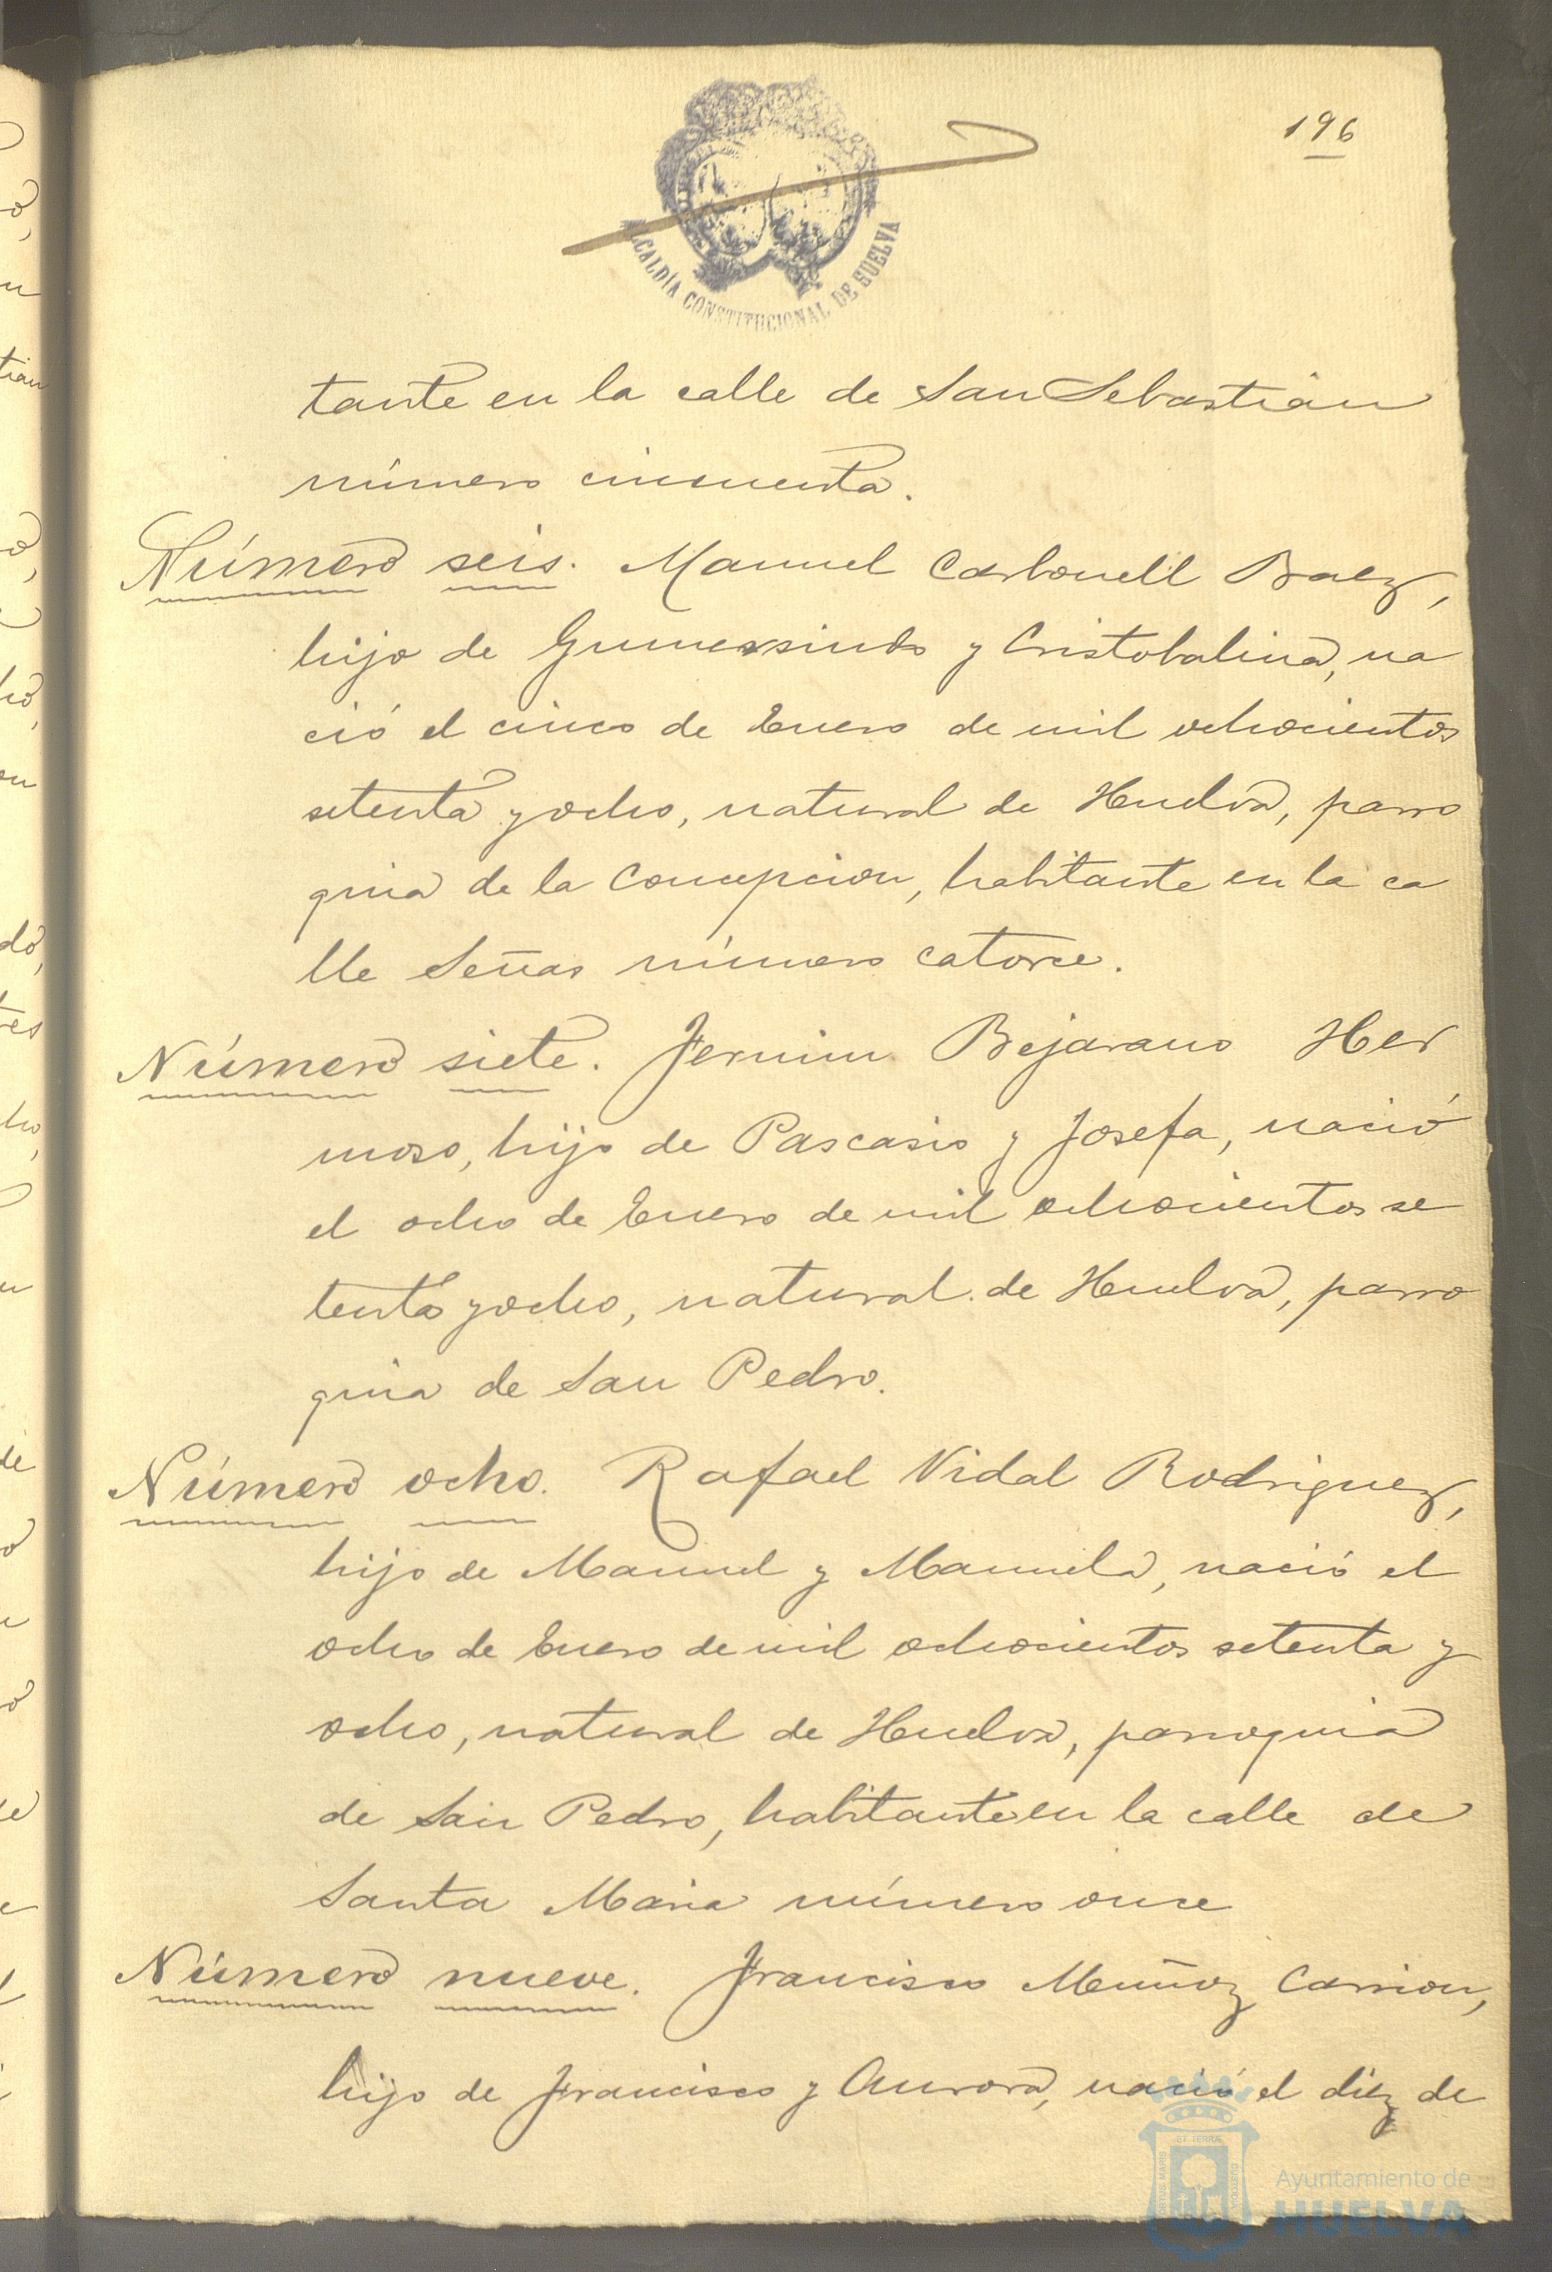 196
ALCALDÍA CONSTITUCIONAL DE HUELVA
tante en la calle de San Sebastián
número cincuenta.
Número seis. Manuel Carbonell Baez,
hijo de Gumersindo y Cristobalina, na
ció el cinco de Enero de mil ochocientos
setenta y ocho, natural de Huelva, parro
quia de la Concepcion, habitante en la ca
lle Señas número catorce.
Número siete. Fermin Bejarano Her
moso, hijo de Pascasio y Josefa, nació
el ocho de Enero de mil ochocientos se
tenta y ocho, natural de Huelva, parro
quia de San Pedro.
Número ocho. Rafael Vidal Rodriguez,
hijo de Manuel y Manuela, nació el
ocho de Enero de mil ochocientos setenta y
ocho, natural de Huelva, parroquia
de San Pedro, habitante en la calle de
Santa Maria número once
Número nueve. Francisco Muñoz Carrion,
hijo de Francisco y Aurora, nació el diez de
Ayuntamiento de
HUELVA